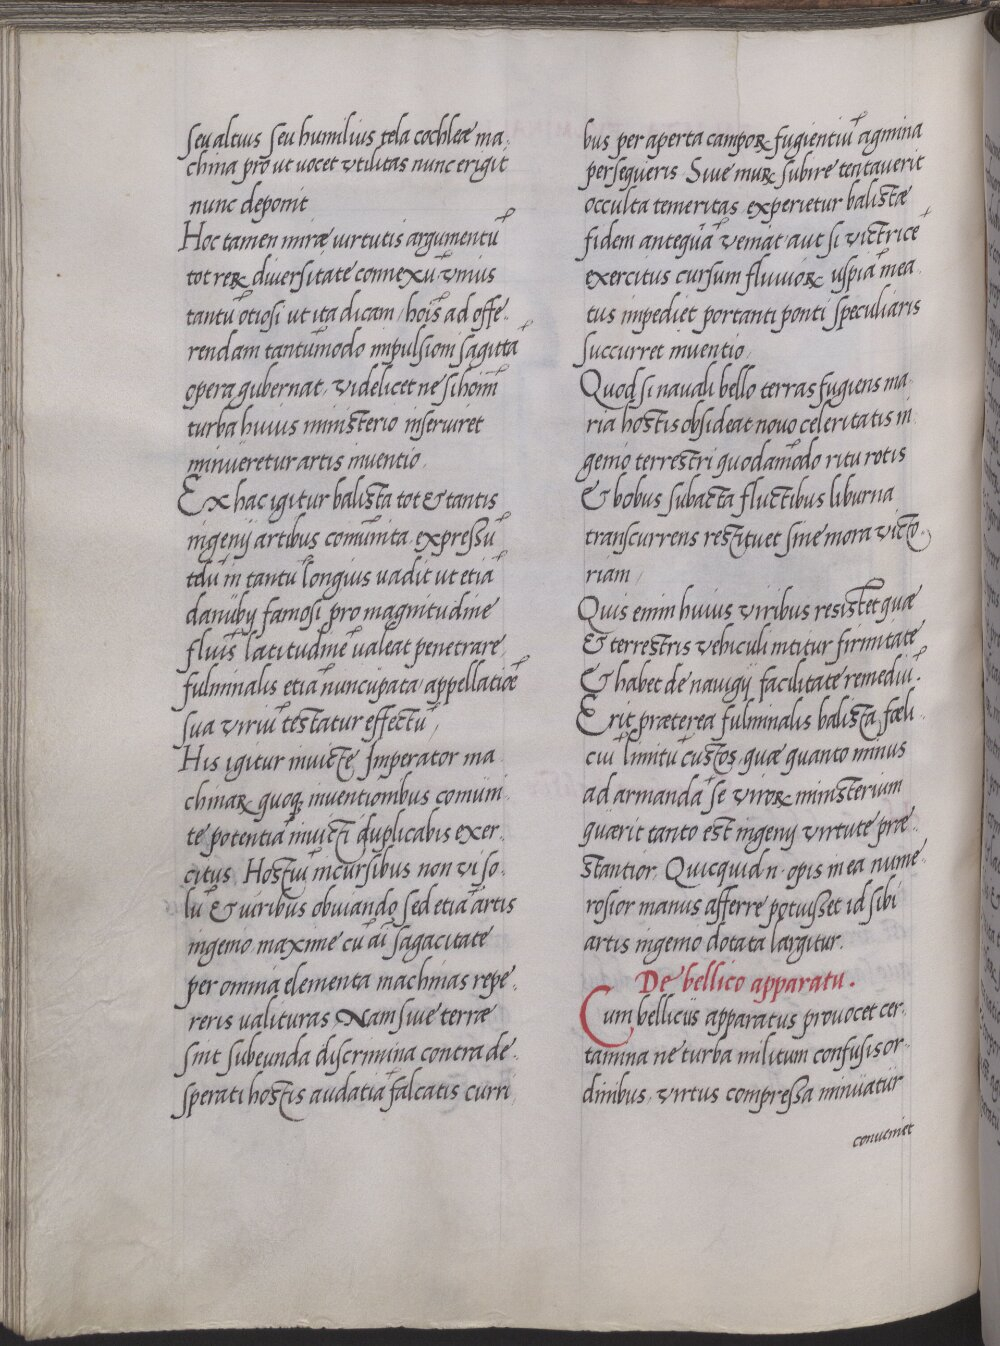 seu altius seu humilius tela cochleæ ma,
china pro ut vocet vtilitas nunc erigit
nunc deponit
Hoc tamen miræ uirtutis argumentū
tot reꝝ diuersitate connexū vnius
tantū otiosi ut ita dicam / hoīs ad offe-
rendam tantūmodo impulsioni sagittā
opera gubernat, videlicet ne si hoīm
turba huius ministerio inseruiret
minueretur artis inuentio,
Ex hac igitur balista tot & tantis
ingenij artibus comūnita expressū
telū in tantū longius uadit ut etiā
danubij famosi pro magnitudine
fluīs latitudinē ualeat penetrare,
fulminalis etiā nuncupata appellatiōe
sua viriū testatur effectū,
His igitur inuicte Imperator ma
chinaꝝ quoqꝫ inuentionibus comūni
te potentiā inuicti duplicabis exer-
citus. Hostiū incursibus non vi so-
lū & uiribus obuiando sed etiā artis
ingenio maxime cū aī sagacitate
per omnia elementa machinas repe-
reris ualituras. Nam siue terræ
sint subeunda discrimina contra de-
sperati hostis audatiā falcatis curri,
bus per aperta campoꝝ fugientiū agmina
persequeris. Siue muꝝ subire tentauerit
occulta temeritas experietur balistæ
fidem antequā veniat aut si victricē
exercitus cursum fluuioꝝ uspiā mea
tus impediet portanti ponti speculiaris
succurret inuentio,
Quod si nauali bello terras fugiens ma-
ria hostis obsideat nouo celeritatis in
genio terrestri quodāmodo ritu rotis
& bobus subacta fluctibus liburna
transcurrens restituet sine mora victo-
riam /
Quis enim huius viribus resistet quæ
& terrestris vehiculi nititur firmitate
& habet de nauigij facilitate remediū.
Erit præterea fulminalis balista fœli-
ciū limitū custos, quæ quanto minus
ad armandā se viroꝝ ministerium
quærit tanto est ingenij virtute præ-
stantior, Quicquid n. opis in ea nume-
rosior manus afferre potuisset id sibi
artis ingenio dotata largitur.
De bellico apparatu.
Cum bellicus apparatus prouocet cer-
tamina ne turba militum confusis or-
dinibus, virtus compressa minuatur
conueniet